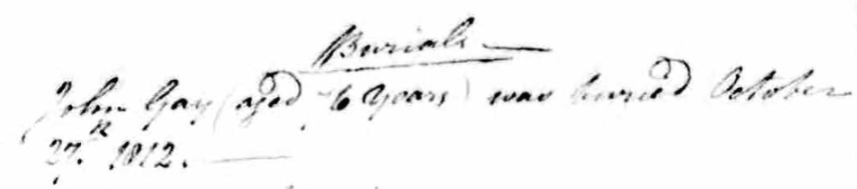 Burials
John Gay (aged 76 Years) was buried October
27.th 1812.